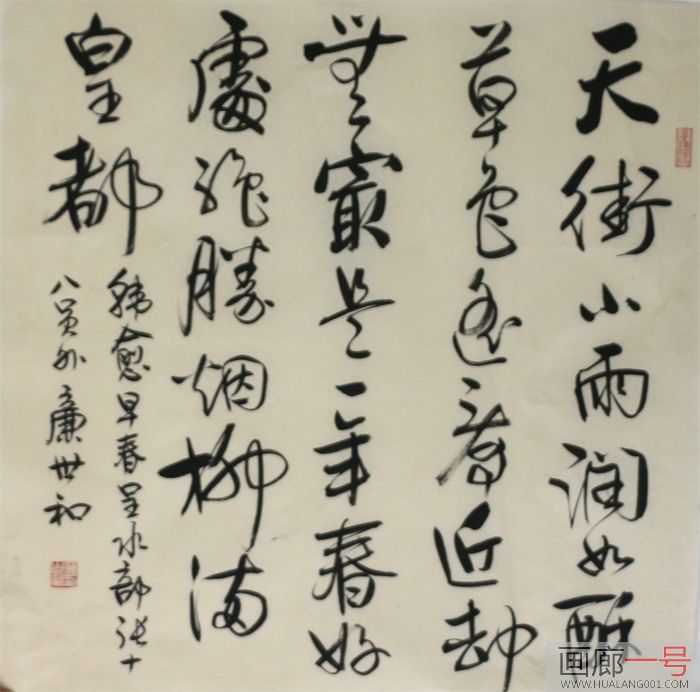 天街小雨润如酥
草色遥看近却
無最是一年春好
處绝勝烟柳满
皇都
韩愈早春呈水部张十
八员外 廉世和
画廊一号
WWW.HUALANG001.COM